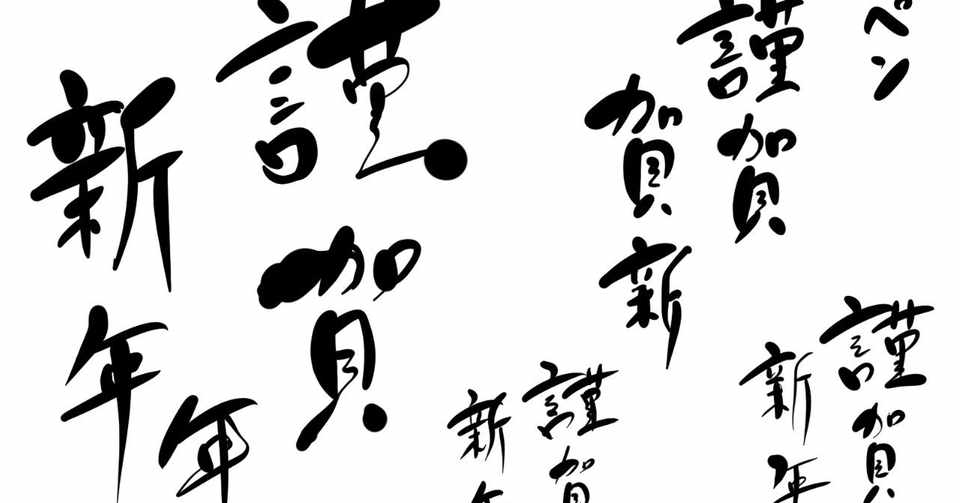 ペン
謹賀
賀新
謹賀
新年
年
謹賀
新年
謹賀
新年